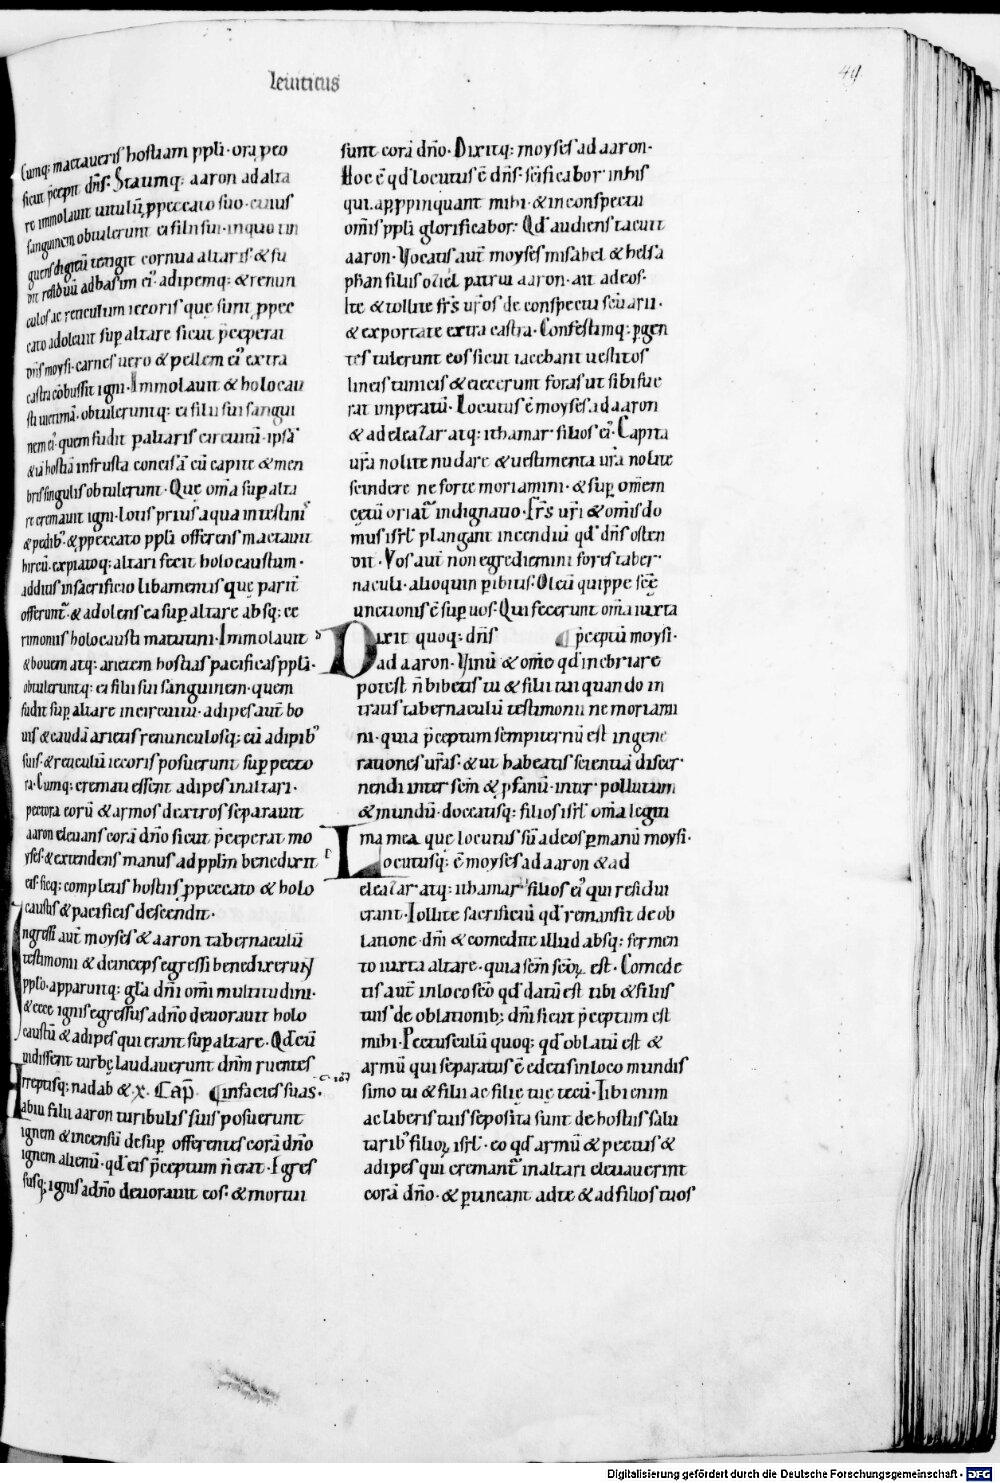 leuiticus
49
Cumq; mactaueris hostiam ppli· ora p eo
sicut p̄cepit dñs. Statimq; aaron ad alta
re immolauit uitulū p peccato suo· cuius
sanguinem obtulerunt ei filii sui· in quo tin
guens digitū tetigit cornua altaris· & fu
dit residuū ad basim ei'· adipemq; & renun
culos ac reticulum iecoris que sunt p pec
cato adoleuit sup altare sicut p̄ceperat
dñs moysi· carnes uero & pellem ei' extra
castra cōbussit igni· Immolauit & holocau
sti uictimā· obtuleruntq; ei filii sui sangui
nem ei'· quem fudit p altaris circuitū· ipsā
& iā hostiā in frusta concisā cū capite & mem
bris singulis obtulerunt· Que om̄a sup alta
re cremauit igni· lotis prius aqua intestinis
& pedib'· & p peccato ppli offerens mactauit
hircū· expiatoq; altari fecit holocaustum·
addius in sacrificio libamentis que parit̄
offerunt̄· & adolens ea sup altare absq; ce
rimoniis holocausti matutini· Immolauit
& bouem atq; arietem hostias pacificas ppli·
obtuleruntq; ei filii sui sanguinem· quem
fudit sup altare in circuitū· adipes aut̄ bo
uis & caudā arietis renunculosq; cū adipib'
suis· & reticulū iecoris posuerunt sup pecto
ra· Cumq; cremati essent adipes in altari·
pectora eorū & armos dextros separauit
aaron eleuans corā dño sicut p̄ceperat mo
yses· & extendens manus ad pplm benedixit
eis· sicq; completis hostiis p peccato & holo
caustis & pacificis descendit·
Ingressi aut̄ moyses & aaron tabernaculū
testimonii & deinceps egressi benedixerunt
pplo· apparuitq; gl̄a dñi omi multitudini·
& ecce ignis egressus a dño deuorauit holo
caustū & adipes qui erant sup altare· Qd cū
uidissent turbę laudauerunt dñm ruentes
Arreptisq; nadab & ·x· Cap̄ in facies suas·
abiu filii aaron turibulis suis posuerunt
ignem & incensū desup offerentes corā dño
ignem alienū· qd eis p̄ceptum ñ erat· Egres
susq; ignis a dño deuorauit eos· & mortui
sunt corā dño· Dixitq; moyses ad aaron·
Hoc ē qd locutus ē dñs· sc̄ificabor in his
qui appinquant mihi· & in conspectu
om̄is ppli glorificabor· Qd audiens tacuit
aaron· Vocatis aut̄ moyses misahel & helsa
phan filiis oziel patrui aaron· ait ad eos·
Ite & tollite fr̄s ur̄os de conspectu sc̄uarii·
& exportate extra castra· Confestimq; pgen
tes tulerunt eos sicut iacebant uestitos
lineis tunicis & eiecerunt foras ut sibi fue
rat imperatū· Locutus ē moyses ad aaron
& ad eleazar atq; ithamar filios ei'· Capita
ur̄a nolite nudare & uestimenta ur̄a nolite
scindere ne forte moriamini· & sup om̄em
cetū oriat̄ indignatio· Fr̄s ur̄i & om̄is do
mus isrl̄ plangant incendiū qd dñs osten
dit· Vos aut̄ non egrediemini fores taber
naculi· alioquin pibitis· Oleū quippe sc̄ę
unctionis ē sup uos· Qui fecerunt om̄ia iuxta
Dixit quoq; dñs p̄ceptū moysi·
ad aaron· Vinū & om̄e qd inebriare
potest ñ bibetis tu & filii tui quando in
tratis tabernaculū testimonii ne moriami
ni· quia p̄ceptum sempiternū est in gene
rationes ur̄as· & ut habeatis scientiā discer
nendi inter sc̄m & pfanū· inter pollutum
& mundū· doceatisq; filios isrl̄ om̄ia legiti
ma mea que locutus sū ad eos p manū moysi·
Locutusq; ē moyses ad aaron & ad
eleazar atq; ithamar filios ei' qui residui
erant· Tollite sacrificiū qd remansit de ob
latione dñi & comedite illud absq; fermen
to iuxta altare· quia sc̄m sc̄oꝝ est· Comede
tis aut̄ in loco sc̄o qd datū est tibi & filiis
tuis de oblationib; dñi sicut p̄ceptum est
mihi· Pectusculū quoq; qd oblatū est &
armū qui separatus ē edetis in loco mundis
simo tu & filii ac filię tuę tecū· Tibi enim
ac liberis tuis seposita sunt de hostiis salu
tarib' filioꝝ isrl̄· eo qd armū & pectus &
adipes qui cremant̄ in altari eleuauerint
corā dño· & ptineant ad te & ad filios tuos
Digitalisierung gefördert durch die Deutsche Forschungsgemeinschaft - DFG